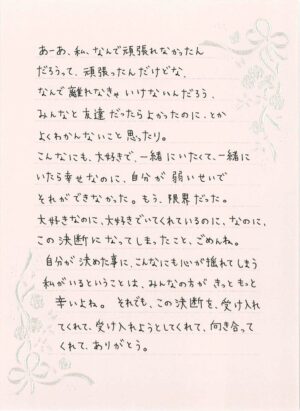 あーあ、私、なんで頑張れなかったん
だろうって、頑張ったんだけどな、
なんで離れなきゃいけないんだろう、
みんなと友達だったらよかったのに、とか
よくわかんないこと思ったり。
こんなにも、大好きで、一緒にいたくて、一緒に
いたら幸せなのに、自分が弱いせいで
それができなかった。もう、限界だった。
大好きなのに、大好きでいてくれているのに、なのに、
この決断になってしまったこと、ごめんね。
自分が決めた事に、こんなにも心が揺れてしまう
私がいるということは、みんなの方がきっともっと
辛いよね。それでも、この決断を、受け入れ
てくれて、受け入れようとしてくれて、向き合って
くれて、ありがとう。